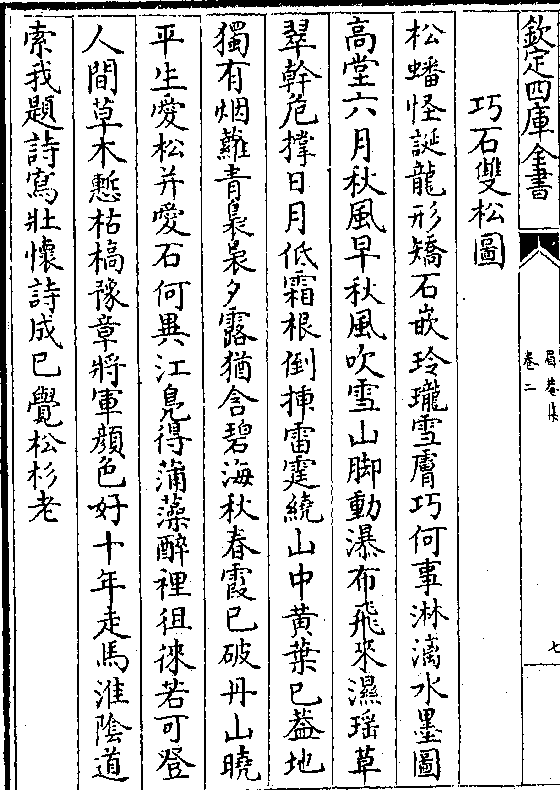 欽定四庫全書
眉菴集
卷二
七
巧石雙松圖
松蟠怪誕龍形矯石嵌玲瓏雪膚巧何事淋漓水墨圖
高堂六月秋風早秋風吹雪山脚動瀑布飛來濕瑶草
翠幹危撑日月低霜根倒挿雷霆繞山中黄葉已葢地
獨有烟蘿青裊裊夕露猶含碧海秋春霞已破丹山曉
平生愛松并愛石何異江鳧得蒲藻醉裡徂徠若可登
人間草木慙枯槁豫章將軍顔色好十年走馬淮陰道
索我題詩寫壯懷詩成已覺松杉老